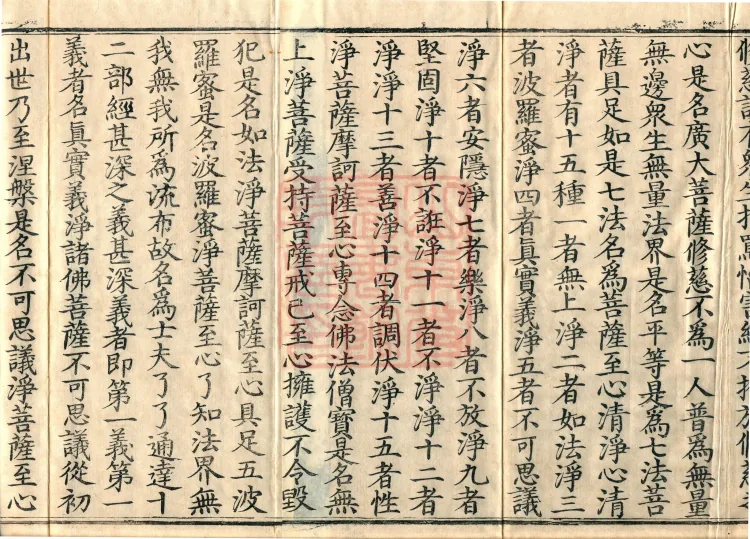 心是名廣大菩薩修慈不爲一人普爲無量
無邊衆生無量法界是名平等是爲七法菩
薩具足如是七法名爲菩薩至心清淨心清
淨者有十五種一者無上淨二者如法淨三
者波羅蜜淨四者眞實義淨五者不可思議
淨六者安隱淨七者樂淨八者不放淨九者
堅固淨十者不誑淨十一者不淨淨十二者
淨淨十三者善淨十四者調伏淨十五者性
淨菩薩摩訶薩至心專念佛法僧寶是名無
上淨菩薩受持菩薩戒已至心擁護不令毀
犯是名如法淨菩薩摩訶薩至心具足五波
羅蜜是名波羅蜜淨菩薩至心了知法界無
我無我所爲流布故名爲士夫了了通達十
二部經甚深之義甚深義者即第一義第一
義者名眞實義淨諸佛菩薩不可思議從初
出世乃至涅槃是名不可思議淨菩薩至心